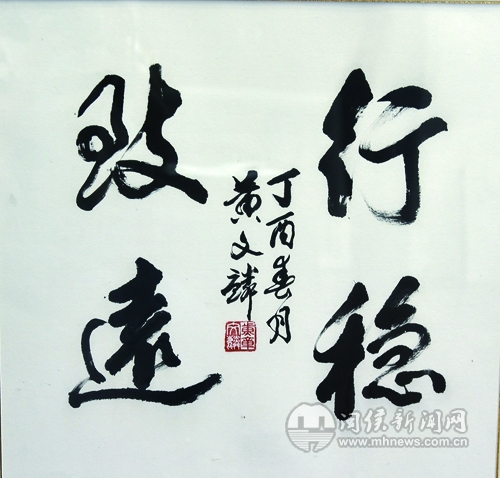 行稳
致遠
丁酉春月
黄文麟
闽侯新闻网
www.mhnews.com.cn